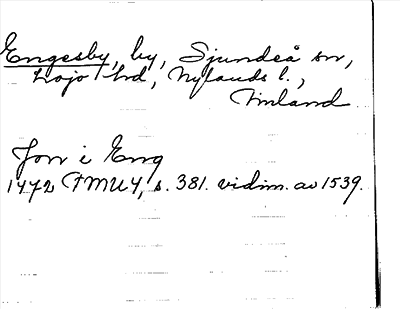 Engesby, by, Sjundeå sn,
Lojo hd, Nylands l.,
Finland
Jon i Eng
1472 FMU4, s. 381. vidim. av 1539.